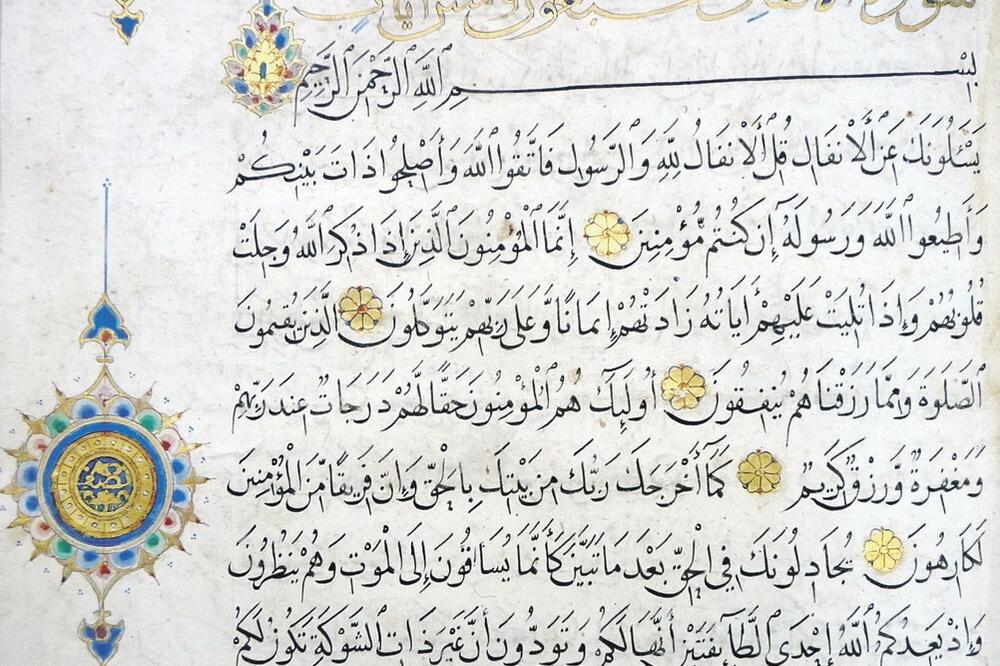 سورة الانفال سبعون وخمس آيات
بِسْمِ اللَّهِ الرَّحْمَنِ الرَّحِيمِ
يَسْئَلُونَكَ عَنِ الْأَنفَالِ قُلِ الْأَنفَالُ لِلَّهِ وَالرَّسُولِ فَاتَّقُوا اللَّهَ وَأَصْلِحُوا ذَاتَ بَيْنِكُمْ
وَأَطِيعُوا اللَّهَ وَرَسُولَهُ إِن كُنتُم مُّؤْمِنِينَ إِنَّمَا الْمُؤْمِنُونَ الَّذِينَ إِذَا ذُكِرَ اللَّهُ وَجِلَتْ
قُلُوبُهُمْ وَإِذَا تُلِيَتْ عَلَيْهِمْ أَيَاتُهُ زَادَتْهُمْ إِيمَانًا وَّعَلَى رَبِّهِمْ يَتَوَكَّلُونَ الَّذِينَ يُقِيمُونَ
الصَّلَوةَ وَمِمَّا رَزَقْنَاهُمْ يُنفِقُونَ أُولَئِكَ هُمُ الْمُؤْمِنُونَ حَقًّا لَّهُمْ دَرَجَاتٌ عِندَ رَبِّهِمْ
وَمَغْفِرَةٌ وَّرِزْقٌ كَرِيمٌ كَمَا أَخْرَجَكَ رَبُّكَ مِن بَيْتِكَ بِالْحَقِّ وَإِنَّ فَرِيقًا مِّنَ الْمُؤْمِنِينَ
لَكَارِهُونَ يُجَادِلُونَكَ فِي الْحَقِّ بَعْدَ مَا تَبَيَّنَ كَأَنَّمَا يُسَاقُونَ إِلَى الْمَوْتِ وَهُمْ يَنظُرُونَ
وَإِذْ يَعِدُكُمُ اللَّهُ إِحْدَى الطَّائِفَتَيْنِ أَنَّهَا لَكُمْ وَتَوَدُّونَ أَنَّ غَيْرَ ذَاتِ الشَّوْكَةِ تَكُونُ لَكُمْ